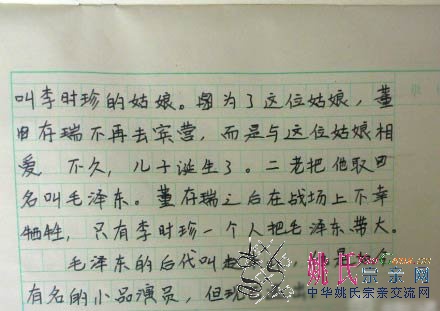 叫李时珍的姑娘。因为了这位姑娘，董
存瑞不再去宾营，而是与这位姑娘相
爱，不久，儿子诞生了。二老把他取
名叫毛泽东。董存瑞之后在战场上不幸
牺牲，只有李时珍一个人把毛泽东带大。
毛泽东的后代叫赵
有名的小品演员，但现
姚氏宗亲网
中华姚氏宗亲交流网